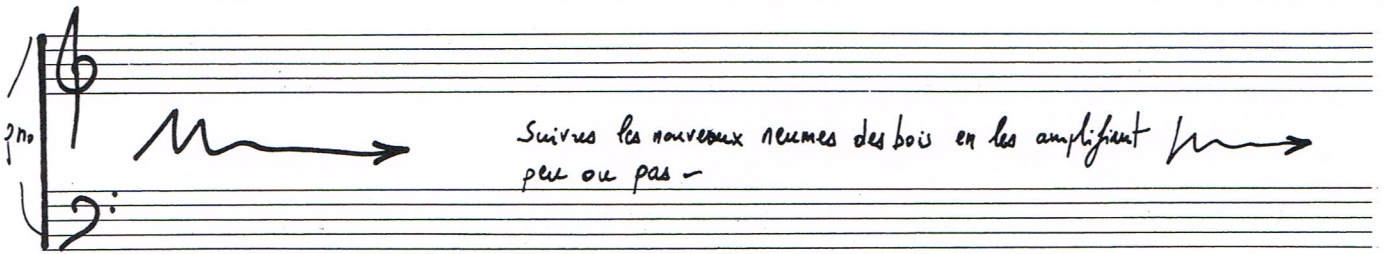 pno
Suivres les nouveaux neumes des bois en les amplifiant
peu ou pas –